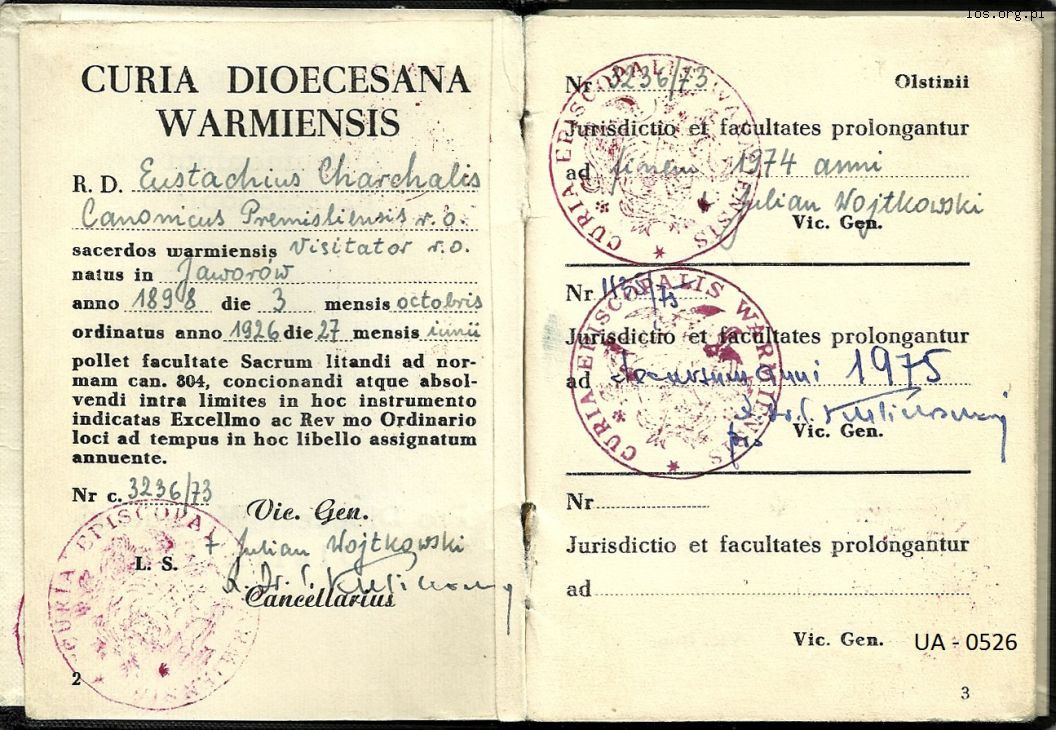 CURIA DIOECESANA
WARMIENSIS
R. D. Eustachius Charchalis
Canonicus Premisliensis r. o.
sacerdos warmiensis Visitator r. o.
natus in Jaworów
anno 1898 die 3 mensis octobris
ordinatus anno 1926 die 27 mensis iunii
pollet facultate Sacrum litandi ad nor-
mam can. 804, concionandi atque absol-
vendi intra limites in hoc instrumento
indicatas Excellmo ac Rev mo Ordinario
loci ad tempus in hoc libello assignatum
annuente.
Nr c. 3236/73
Vic. Gen.
† Julian Wojtkowski
L. S.
Cancellarius
CURIA EPISCOPALIS WARMIENSIS
2
los.org.pl
Nr 3236/73 Olstinii
Jurisdictio et facultates prolongantur
ad finem 1974 anni
† Julian Wojtkowski
Vic. Gen.
CURIA EPISCOPALIS WARMIENSIS
Nr
Jurisdictio et facultates prolongantur
ad anni 1975
Vic. Gen.
CURIA EPISCOPALIS WARMIENSIS
Nr
Jurisdictio et facultates prolongantur
ad
Vic. Gen.
UA - 0526
3